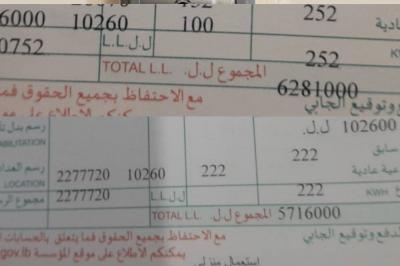 252
6000 10260 100 ادية
0752 ل.ل. L.L. 252
TOTAL L.L. المجموع ل.ل. 6281000
مع الاحتفاظ بجميع الحقوق فما وتوقيع الجابي
رسم بدل تا 102600 ل.ل.
ABILITATION
222 سابق
رسم العدا 2277720 10260 222 عية عادية
LOCATION
مجموع الر 2277720 ل.ل. L.L. 222 KWH
TOTAL L.L. المجموع ل.ل. 5716000
مع الاحتفاظ بجميع الحقوق فيما يتعلق بالحسابات لدفع وتوقيع الجابي
يمكنكم الاطلاع على موقع المؤسسة gov.lb
استعمال منزلي